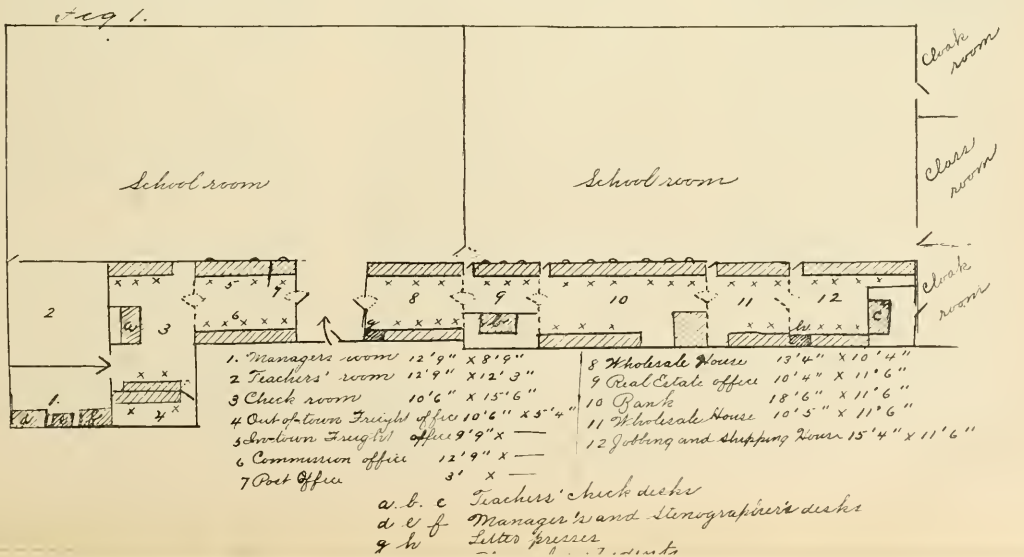 Fig 1.
School room
School room
Cloak
room
Class
room
Cloak
room
5
7
8
9
10
11
12
2
a
3
6
g
b
h
c
1.
d
e
f
4
1. Managers room 12'9" x 8'9"
2 Teachers' room 12'9" x 12'3"
3 Check room 10'6" x 15'6"
4 Out-of-town Freight office 10'6" x 5'4"
5 In-town Freight office 9'9" x —
6 Commission office 12'9" x —
7 Post Office 3' x —
8 Wholesale House 13'4" x 10'4"
9 Real Estate office 10'4" x 11'6"
10 Bank 18'6" x 11'6
11 Wholesale House 10'5" x 11'6"
12 Jobbing and Shipping House 15'4" x 11'6"
a. b. c Teachers' check desks
d e f Manager's and Stenographer's desks
g h Letter presses